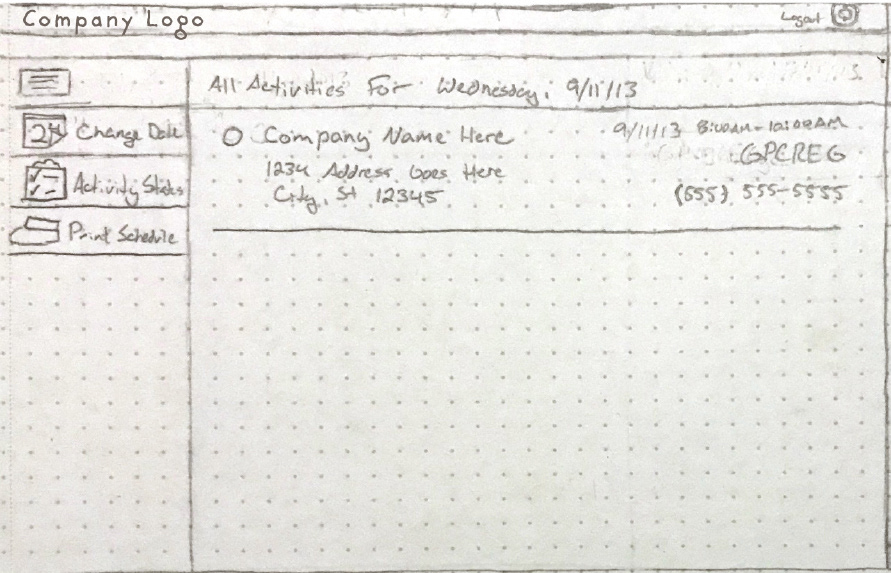 Company Logo
Logout
All Activities For Wednesday, 9/11/13
24 Change Date
Company Name Here
9/11/13 8:00AM-10:00AM
GPCREG
1234 Address Goes Here
Activity States
City, St 12345
(555) 555-5555
Print Schedule